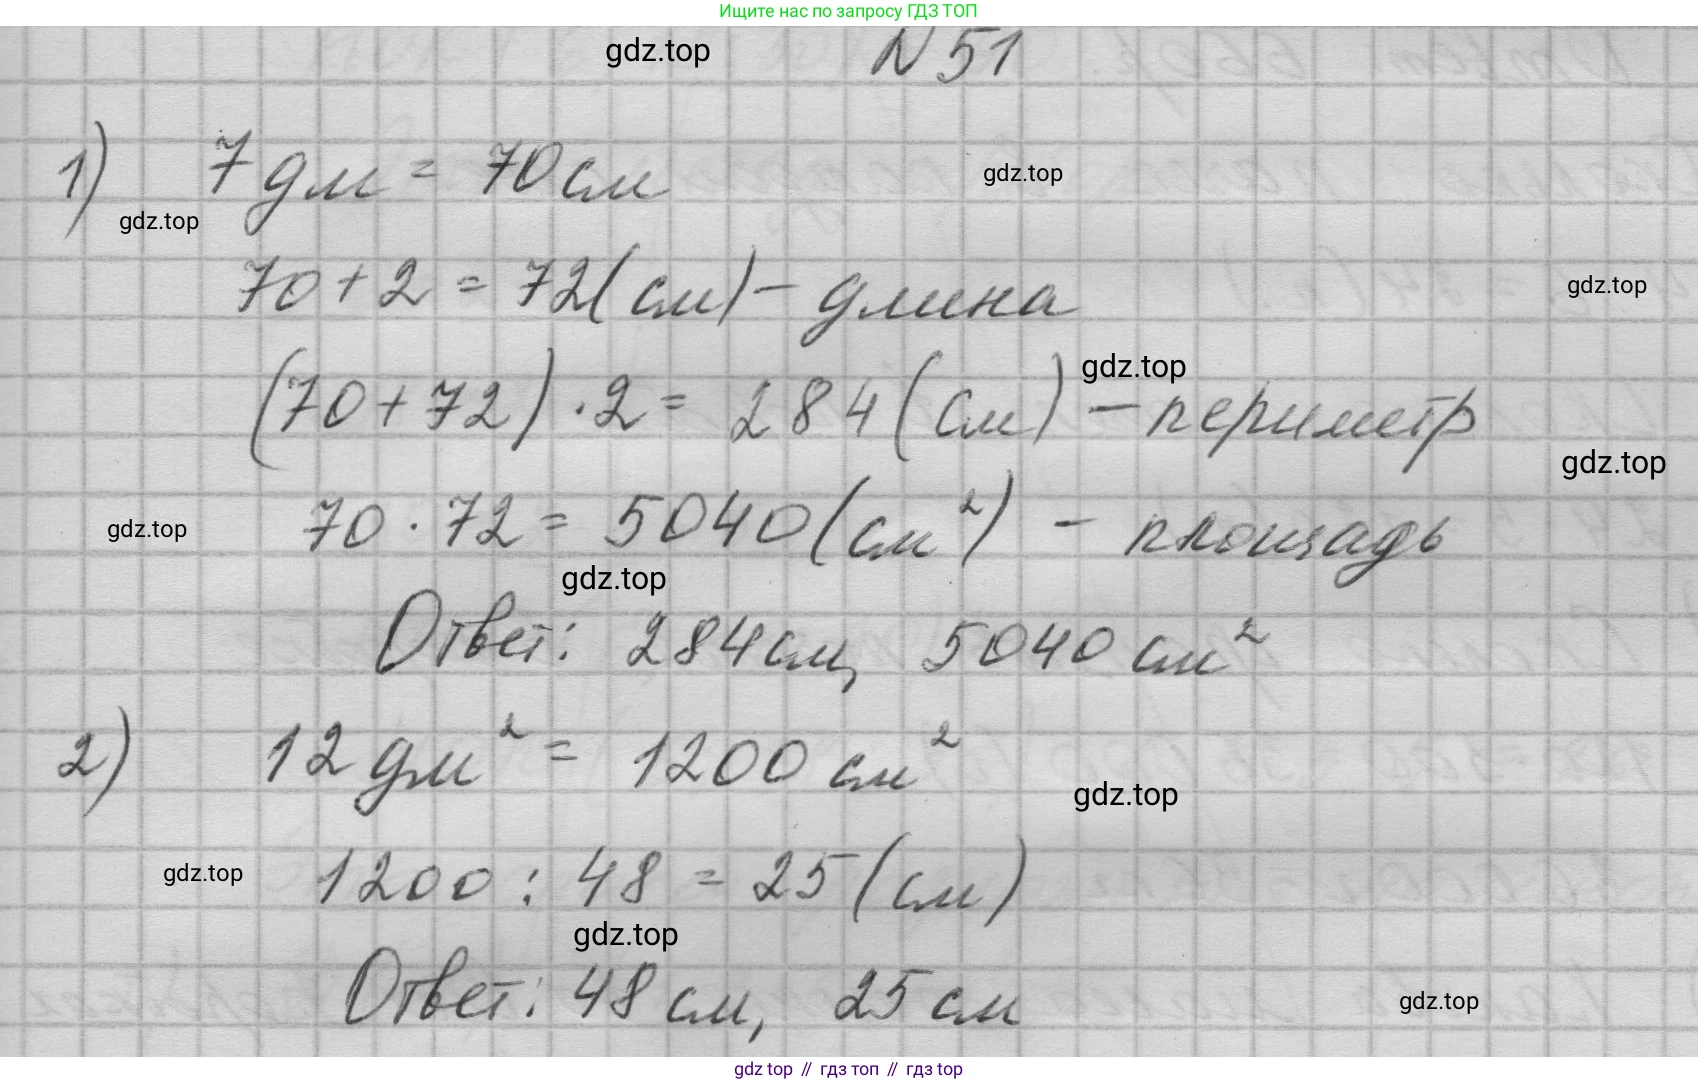 Ищите нас по запросу ГДЗ ТОП
gdz.top
N 51
1) 7 дм = 70 см
gdz.top
gdz.top
70 + 2 = 72 (см) - длина
gdz.top
gdz.top
(70 + 72) · 2 = 284 (см) - периметр
gdz.top
70 · 72 = 5040 (см²) - площадь
gdz.top
gdz.top
Ответ: 284 см, 5040 см²
2) 12 дм² = 1200 см²
gdz.top
1200 : 48 = 25 (см)
gdz.top
gdz.top
Ответ: 48 см, 25 см
gdz.top
gdz top // гдз топ // гдз top